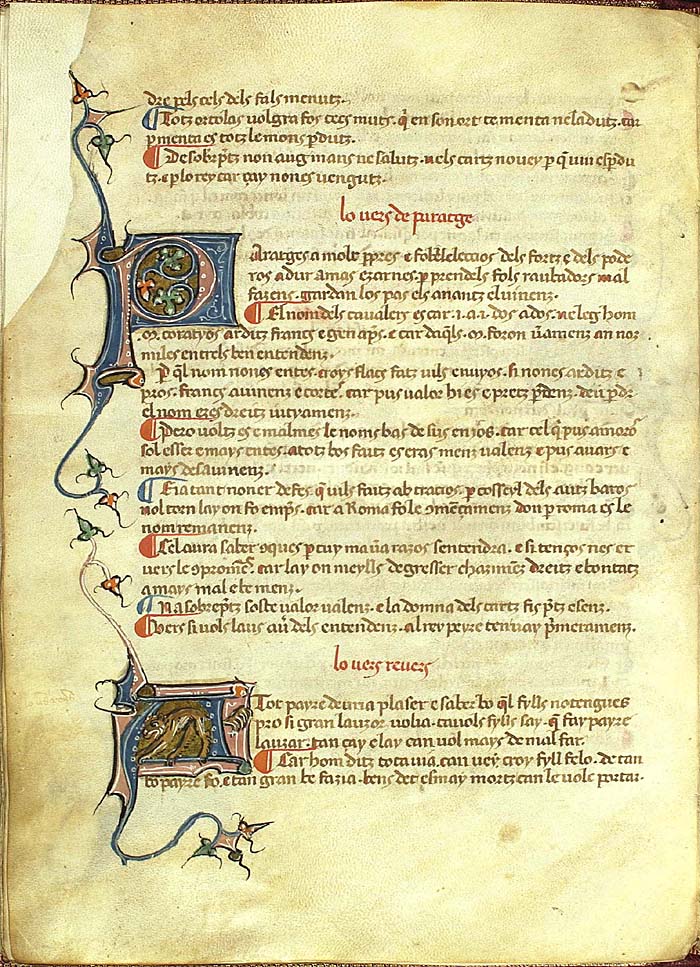 dre pels cels dels fals menutz.
¶ Totz ortolas volgra fos cecs e muts. q̃ en son ort te menta ne la dutz. car
pmenta es totz le mons pdutz.
¶ De sobrp̃tz non aug mans ne salutz. nels cartz no vey p q̃ un espdu
tz. e plo rey car çay non es vengutz.
lo vers de paratge
Paratges a molt
dels fortz e dels pode
ros adur amas ez arnes. p prendels fols raubadors mal
fazens. gardan los pas els anantz el vinenz.
¶ El nom dels cavaleirs es car. i. a. i. dos a dos. ne leg hom
.M. coratyos arditz francs e gen ap̃s. e car daq̃ls .M. foron
an nor
miles entrels ben entendenz.
P q̃l nom non es entes. croys flacs fatz vils enuyos. si non es arditz e
pros. francs avinenz e cortes. car pus valor hi es e pretz pdenz. deu pdr
el nom ez es dreitz iutyamenz.
¶ Pero voltz es e malmes le noms bas de sus en ios. car cel q̃ pus amoros
sol esser e mays entes. a totz bos faitz es eras menz valenz e pus avars e
mays desavinenz.
¶ E ia tant non er defes. q̃ vils faitz ab tracios. p cosseyl dels autz baros
nol torn lay on fo emp̃s. car a Roma fo le 9mençamenz don p roma es le
nom remanenz.
¶ Cel aura saber 9ques p cuy ma
razos sentendra. e si tenços nes et
vers le
car lay on meylls degresser
dreitz e bontatz
a mays mal e te menz.
¶ Na sobrep̃tz soste valor valenz. e la domna dels cartz fis p̃tz e senz.
¶ Vers si vols laus
dels entendenz. al rey peyre ten vay p̃meramenz.
lo vers revers
A Tot payre deuria plaser e saber bo q̃l fylls no tengues
pro si gran lauzor volia. cavols fylls say. q̃ fay payre
lauzar. tan çay e lay can vol mays de mal far.
¶ Car hom ditz tota via. can vey croy fyll felo. de tan
bo payre fo. e tan gran be fazia. bens det esmay mortz can le volc portar.